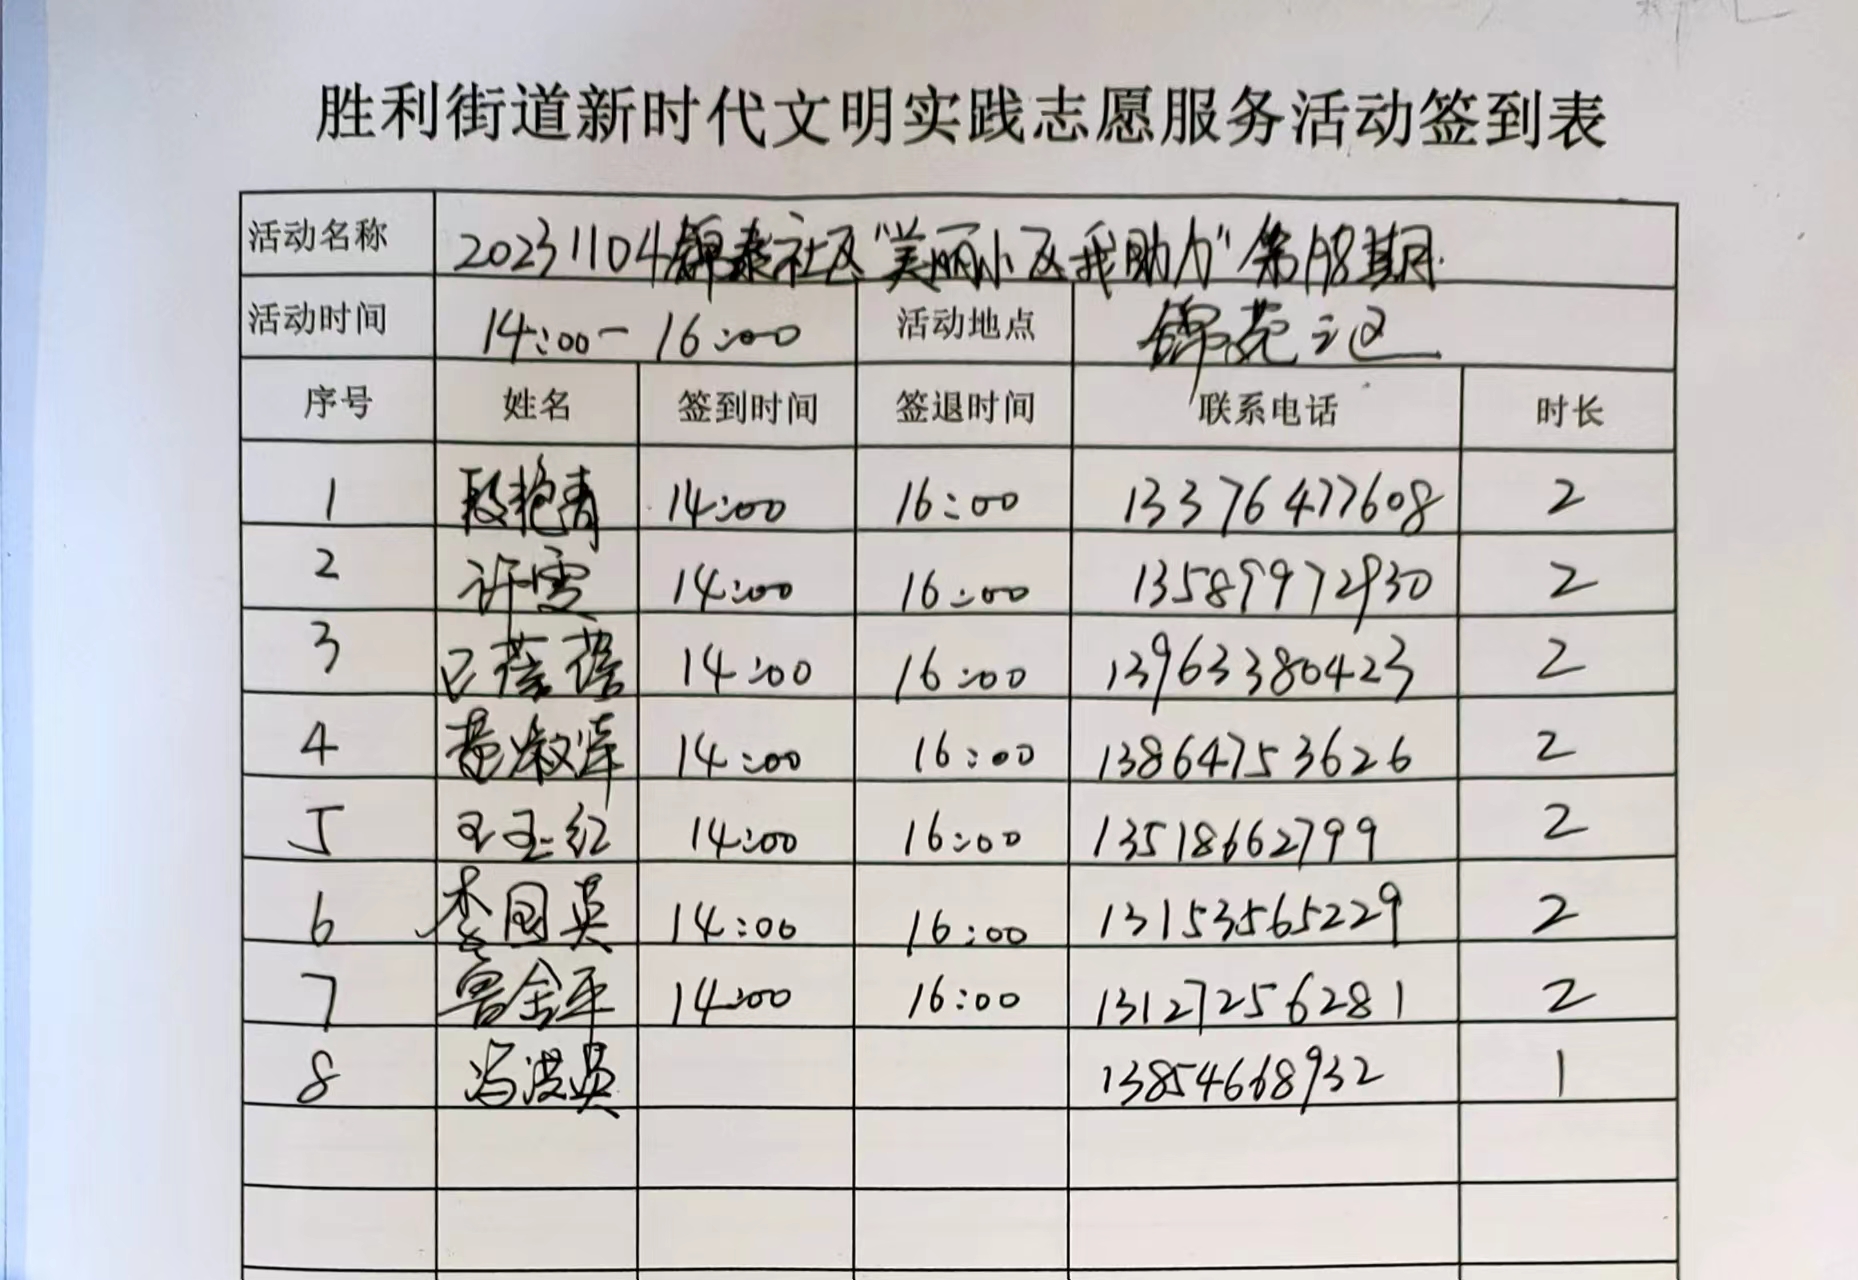 胜利街道新时代文明实践志愿服务活动签到表
活动名称 20231104锦泰社区“美丽小区我助力”第198期
活动时间 14:00-16:00 活动地点 锦苑三区
序号 姓名 签到时间 签退时间 联系电话 时长
1 段艳青 14:00 16:00 13376477608 2
2 许雯 14:00 16:00 13589972930 2
3 14:00 16:00 13963380423 2
4 14:00 16:00 13864753626 2
5 王玉红 14:00 16:00 13518662799 2
6 李国英 14:00 16:00 13153565229 2
7 鲁金平 14:00 16:00 13127256281 2
8 冯洪英 13854668932 1